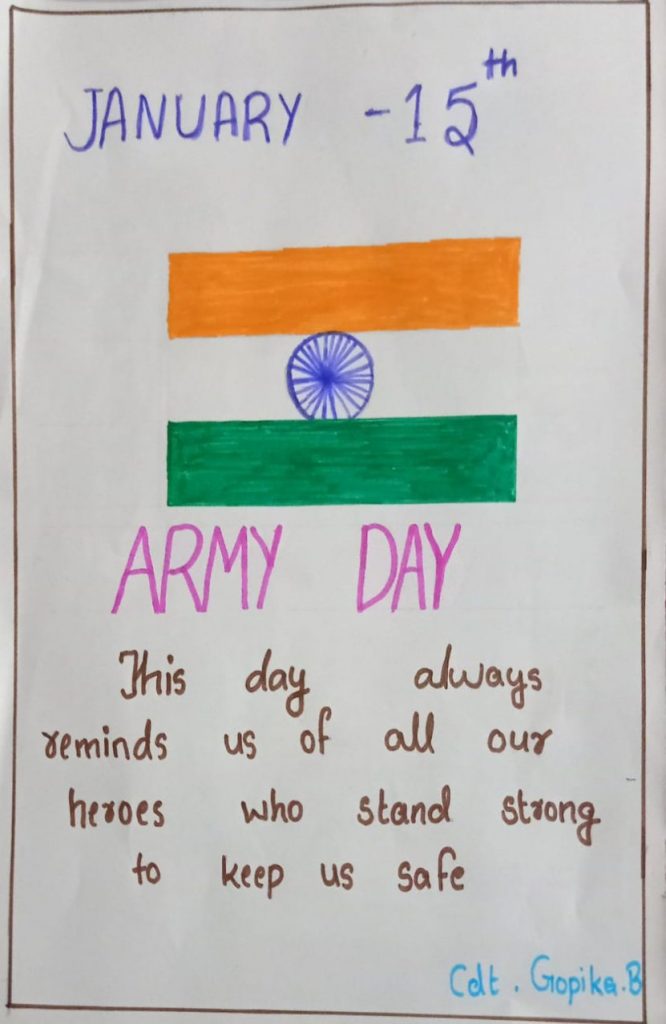 JANUARY - 15th
ARMY DAY
This day always
reminds us of all our
heroes who stand strong
to keep us safe
Cdt. Gopika.B